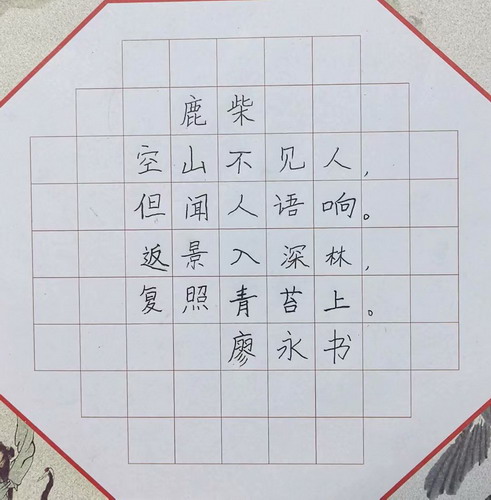 鹿柴
空山不见人,
但闻人语响。
返景入深林,
复照青苔上。
廖永书